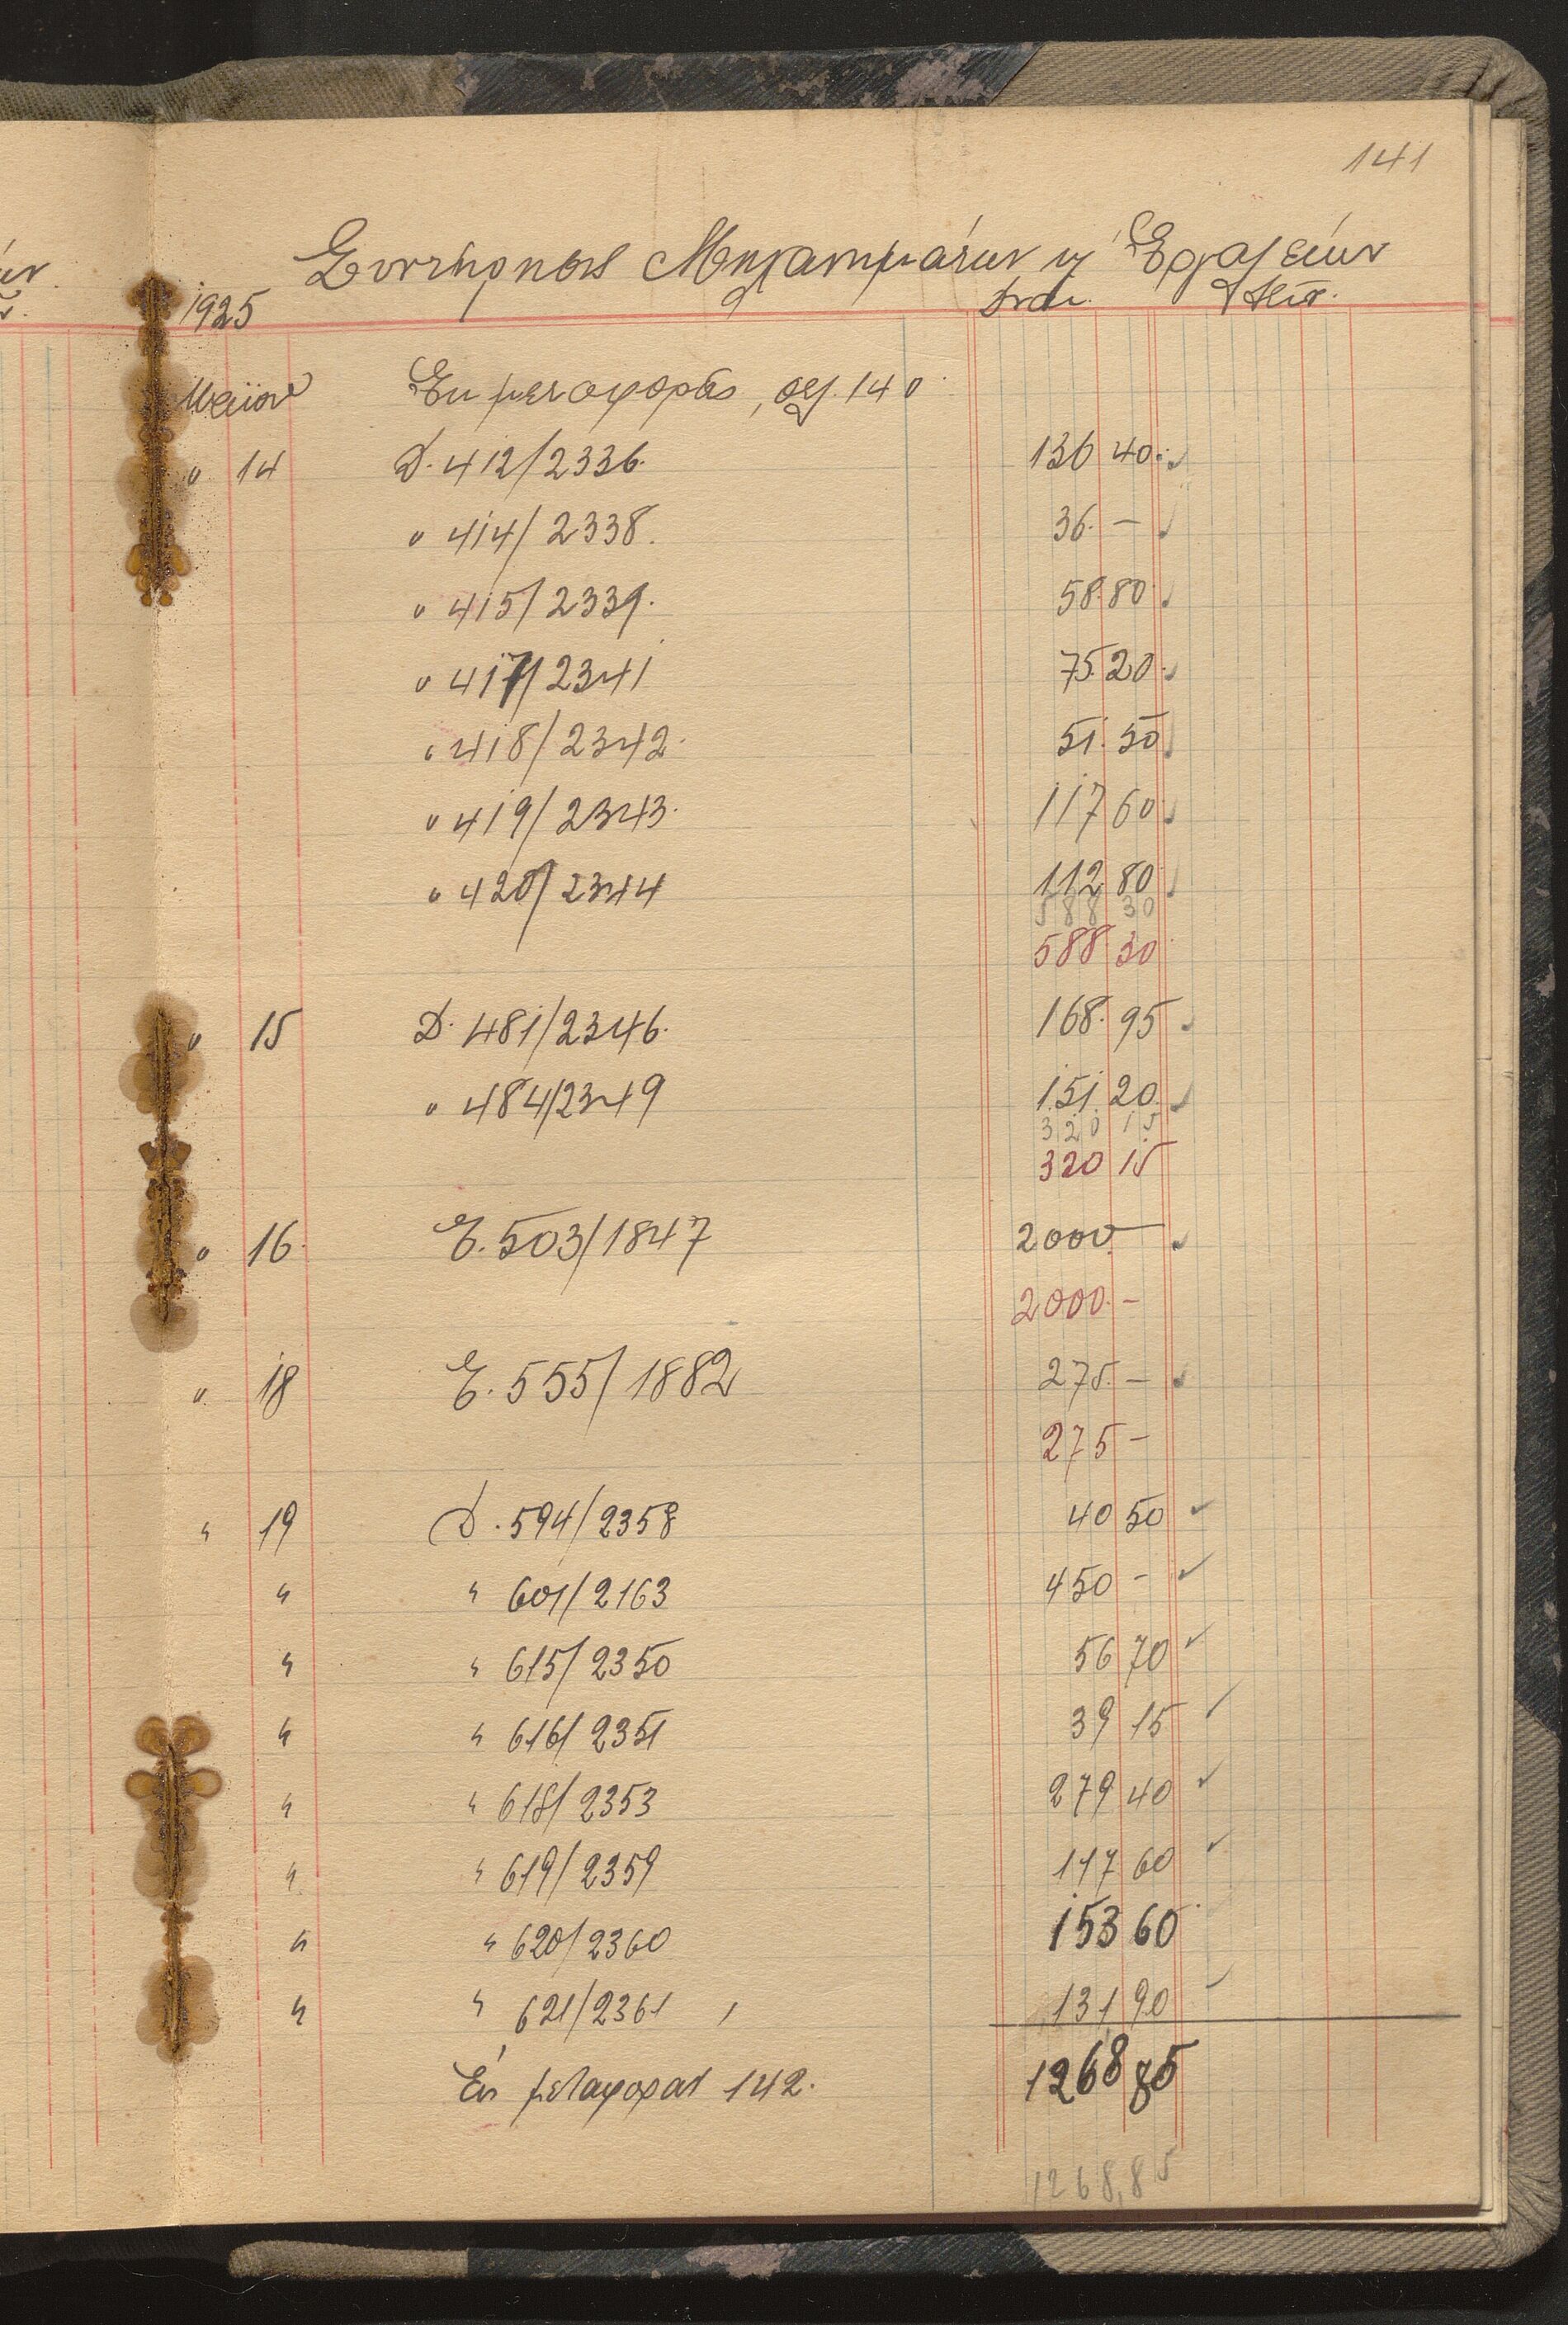 141
Συντήρησις Μηχανημάτων ϗ Ἐργαλείων
1925
Μαΐου Ἐκ μεταφορᾶς, σελ. 140
" 14 Δ. 412/2336. 136 40
" 414/2338. 36. —
" 415/2339. 58.80
" 417/2341 75.20
" 418/2342. 51.50
" 419/2343. 117 60
" 420/2344 112 80
588 30
588 30
" 15 Δ. 481/2346. 168.95
" 484/2349 151.20
320 15
320 15
" 16. Ε. 503/1847 2000 —
2000. —
" 18 Ε. 555/1882 275. —
275 —
" 19 Δ. 594/2358 40 50
" " 601/2163 450 -
" " 615/2350 56 70
" " 616/2351 39 15
" " 618/2353 279 40
" " 619/2359 117 60
" " 620/2360 153 60
" " 621/2361 131 90
Εἰς μεταφοράν 142. 1268 85
1268,85